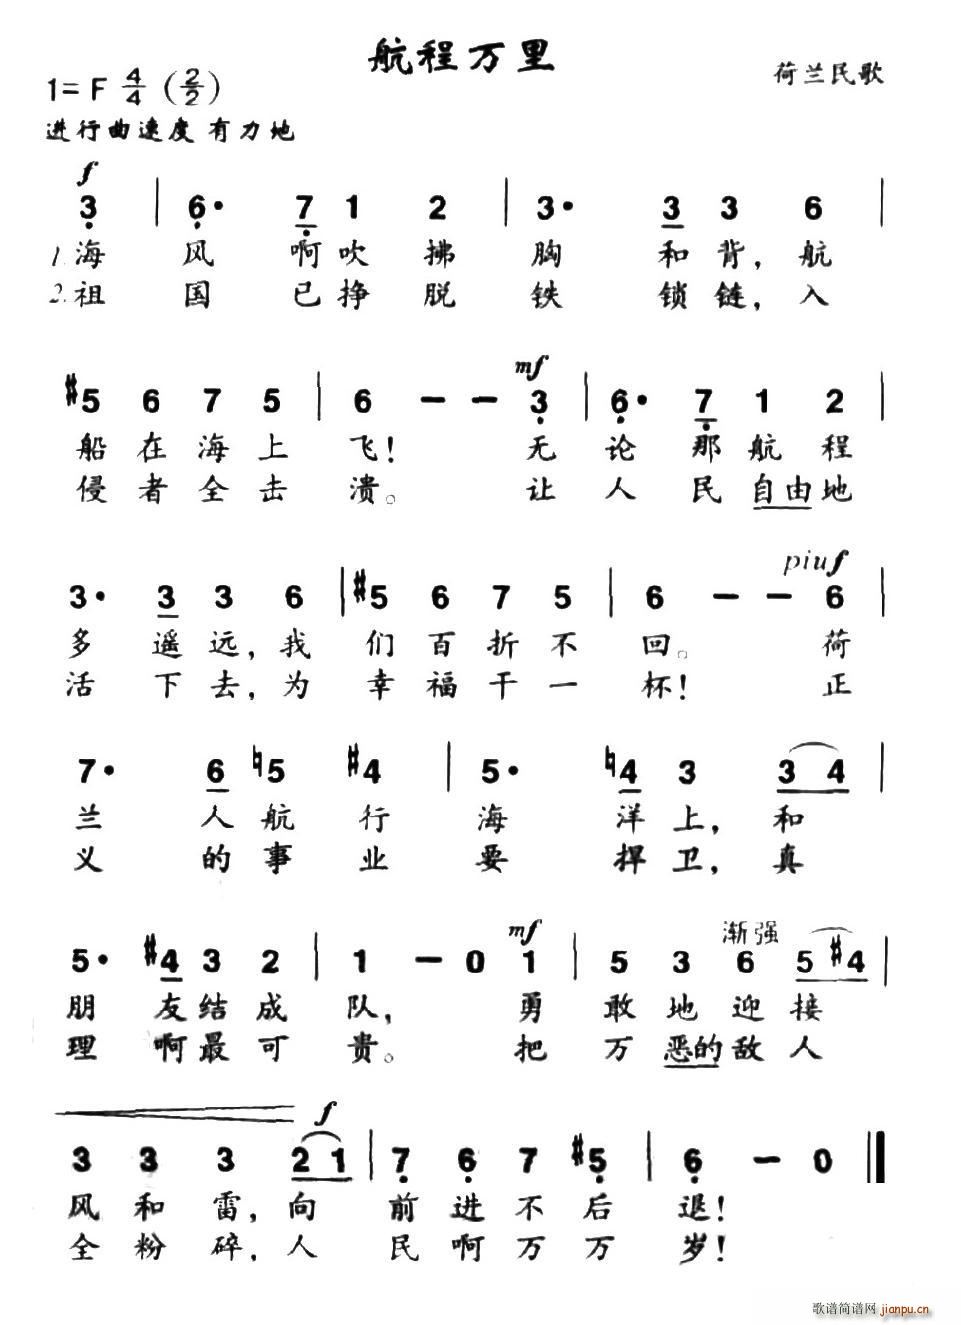 航程万里
1=F 4/4 (2/2)
荷兰民歌
进行曲速度 有力地
f
3 | 6· 7 1 2 | 3· 3 3 6 |
1.海 风 啊吹 拂 胸 和背,航
2.祖 国 已挣 脱 铁 锁链,入
mf
#5 6 7 5 | 6 - - 3 | 6· 7 1 2 |
船 在 海 上 飞! 无 论 那 航 程
侵 者 全 击 溃。 让 人 民 自由地
piuf
3· 3 3 6 | #5 6 7 5 | 6 - - 6 |
多 遥 远,我 们 百 折 不 回。 荷
活 下 去,为 幸 福 干 一 杯! 正
7· 6 ♮5 #4 | 5· ♮4 3 3 4 |
兰 人 航 行 海 洋 上, 和
义 的 事 业 要 捍 卫, 真
mf 渐强
5· #4 3 2 | 1 - 0 1 | 5 3 6 5 #4 |
朋 友 结 成 队, 勇 敢 地 迎 接
理 啊 最 可 贵。 把 万 恶的敌 人
f
3 3 3 2 1 | 7 6 7 #5 | 6 - 0 ‖
风 和 雷,向 前 进 不 后 退!
全 粉 碎,人 民 啊 万 万 岁!
歌谱简谱网 jianpu.cn